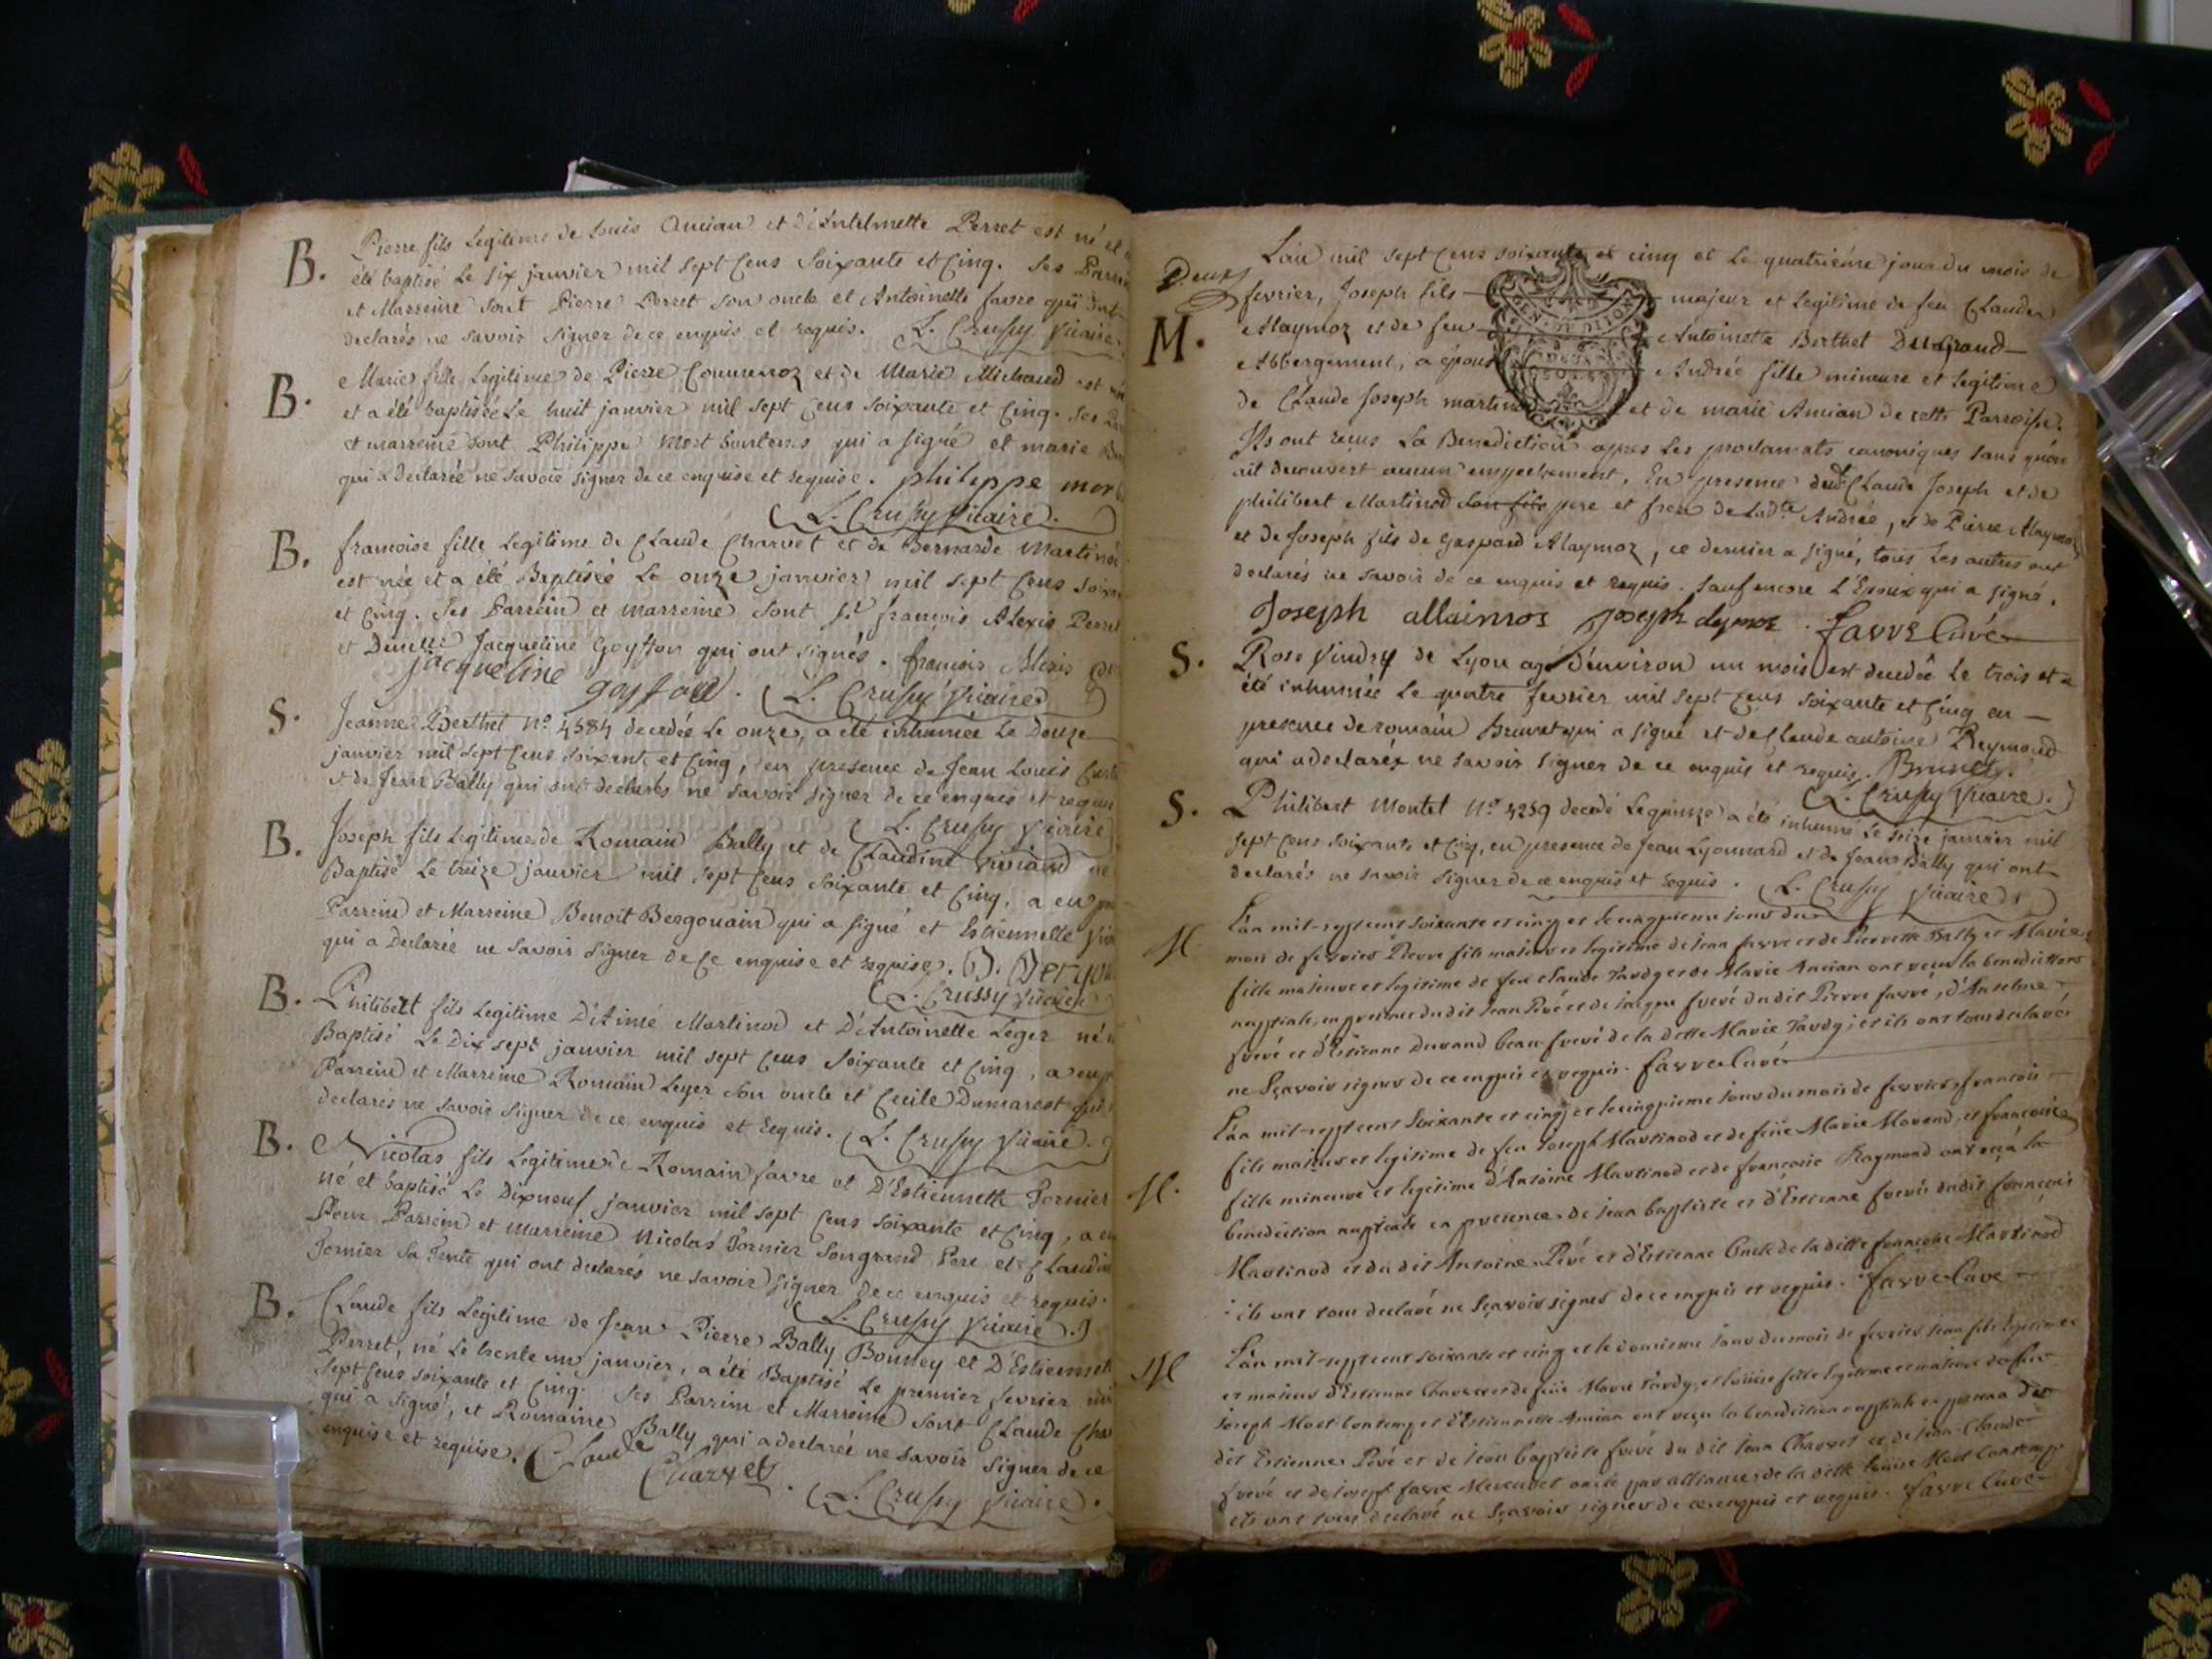 B. Pierre fils Legitime de Louis Amian et d'Antelmette Perret est né et a
été baptisé Le six janvier mil sept Cens Soixante et Cinq. Ses Parrein
et Marreine sont Pierre Perret son oncle et Antoinette favre qui ont
declarés ne savoir signer de ce enquis et requis. L. Crussy Vicaire.
B. Marie fille Legitime de Pierre et de Marie Michaud est née
et a été baptisée Le huit janvier mil sept Cens soixante et Cinq. Ses
et marreine sont Philippe Mort bontems qui a signé et marie
qui a declarée ne savoir signer de ce enquise et requise. philippe mor
L. Crussy Vicaire.
B. francoise fille Legitime de Claude Charvet et de Bernarde Martinod
est née et a été Baptisée Le onze janvier mil sept Cens soixa
et Cinq. Ses Parrein et marreine sont Sr françois Alexis Perret
et Demlle Jacqueline Goyffon qui ont signés. françois Alexis
jacqueline goyffon. L. Crussy Vicaire
S. Jeanne Berthet No. 4584 decedée Le onze, a été inhumée Le Douze
janvier mil sept Cens soixante et Cinq, en presence de Jean Louis
et de Jean Bally qui ont declarés ne savoir signer de ce enquis et requis
L. Crussy Vicaire
B. Joseph fils Legitime de Romain Bally et de Claudine Viviand né
Baptisé Le treize janvier mil sept Cens soixante et Cinq, a eu
Parrein et Marreine Benoit Bergouain qui a signé et Estiennette
qui a Declarée ne savoir signer de Ce enquise et requise.
L. Crussy Vicaire
B. Philibert fils Legitime D'Aimé Martinod et D'Antoinette Leger né
Baptisé Le Dix sept janvier mil sept Cens soixante et Cinq, a eu
Parrein et Marreine Romain Leger son oncle et Cecile Dumarest
declarés ne savoir signer de ce enquis et Requis. L. Crussy Vicaire.
B. Nicolas fils Legitime de Romain favre et D'Estiennette Fornier
né et baptisé Le Dixneuf janvier mil sept Cens soixante et Cinq, a eu
Pour Parrein et Marreine Nicolas Fornier son grand Pere et Claudine
Fornier sa Tente qui ont declarés ne savoir signer de ce enquis et requis.
L. Crussy Vicaire.
B. Claude fils Legitime de Jean Pierre Bally Bonney et D'Estiennette
Perret, né Le trente un janvier, a été Baptisé Le premier fevrier mil
sept Cens soixante et Cinq. Ses Parrein et Marreine sont Claude Char
qui a signé, et Romaine Bally qui a declarée ne savoir signer de ce
enquise et requise. Claude Charvet. L. Crussy Vicaire.
L'an mil sept Cens soixante et cinq et Le quatriéme jour du mois de
Deux fevrier, Joseph fils majeur et Legitime de feu Claude
M. Alaymoz et de feu Antoinette Berthet Du Grand
Abbergement, a épous Andrée fille mineure et legitime
de Claude Joseph martino et de marie Amian de cette Parroisse.
Ils ont reçus La Benediction apres Les proclamats canoniques sans qu'on
ait decouvert aucun empechement, En presence dudt Claude Joseph et de
philibert Martinod son fils pere et frere de Ladte Andrée, et de Pierre Alaymoz
et de Joseph fils de Gaspard Alaymoz, ce dernier a signé, tous Les autres ont
declarés ne savoir de ce enquis et requis. sauf encore L'Epoux qui a signé.
Joseph allaimos joseph alymoz. favre Curé
S. Rose Vindry de Lyon agé d'environ un mois est decedée Le trois et a
été inhumée Le quatre fevrier mil sept Cens soixante et Cinq en
presence de romain Brunet qui a signé et de Claude antoine Reymond
qui a declaré ne savoir signer de ce enquis et requis. Brunet.
L. Crussy Vicaire.
S. Philibert Montet No. 4259 decedé Le quinze a été inhumé Le seize janvier mil
sept Cens soixante et Cinq, en presence de Jean Lyonnard et de Jean Bally qui ont
declarés ne savoir signer de ce enquis et requis. L. Crussy Vicaire
L'an mil-sept cent soixante et cinq et le cinquieme jour du
M. mois de fevrier Pierre fils majeur et legitime de jean favre et de Pierrette Bally et Marie
fille majeure et legitime de feu claude Tardy et de Marie Amian ont reçu la benediction
nuptiale, en presence du dit jean Péré et de jacque frere du dit Pierre favre, d'Anselme
freré et d'Estienne Durand beau freré de la ditte Marie Tardy; et ils ont tous declaré
ne sçavoir signer de ce enquis et requis. favre Curé
L'an mil-sept cent soixante et cinq et le cinquieme jour du mois de fevrier, francois
fils majeur et legitime de feu joseph Martinod et de feüe Marie Morand, et francoise
M. fille mineure et legitime d'Antoine Martinod et de francoise Raymond ont reçu la
benediction nuptiale en presence de jean baptiste et d'Estienne freres du dit françois
Martinod et du dit Antoine Péré et d'Estienne Oncle de la ditte francoise Martinod
ils ont tous declaré ne sçavoir signer de ce enquis et requis. favre Curé
M. L'an mil-sept cent soixante et cinq et le douzieme jour du mois de fevrier jean fils legitime
et majeur d'Estienne Charvet et de feüe Marie Tardy, et loüise fille legitime et majeure de feu
joseph Mort bontemp et d'Estiennette Amian ont reçu la benediction nuptiale en presence du
dit Estienne Péré et de jean baptiste freré du dit jean Charvet et de jean Claude
freré et de joseph favre oncle par alliance de la ditte loüise Mort bontemp
ils ont tous declaré ne sçavoir signer de ce enquis et requis. favre Curé